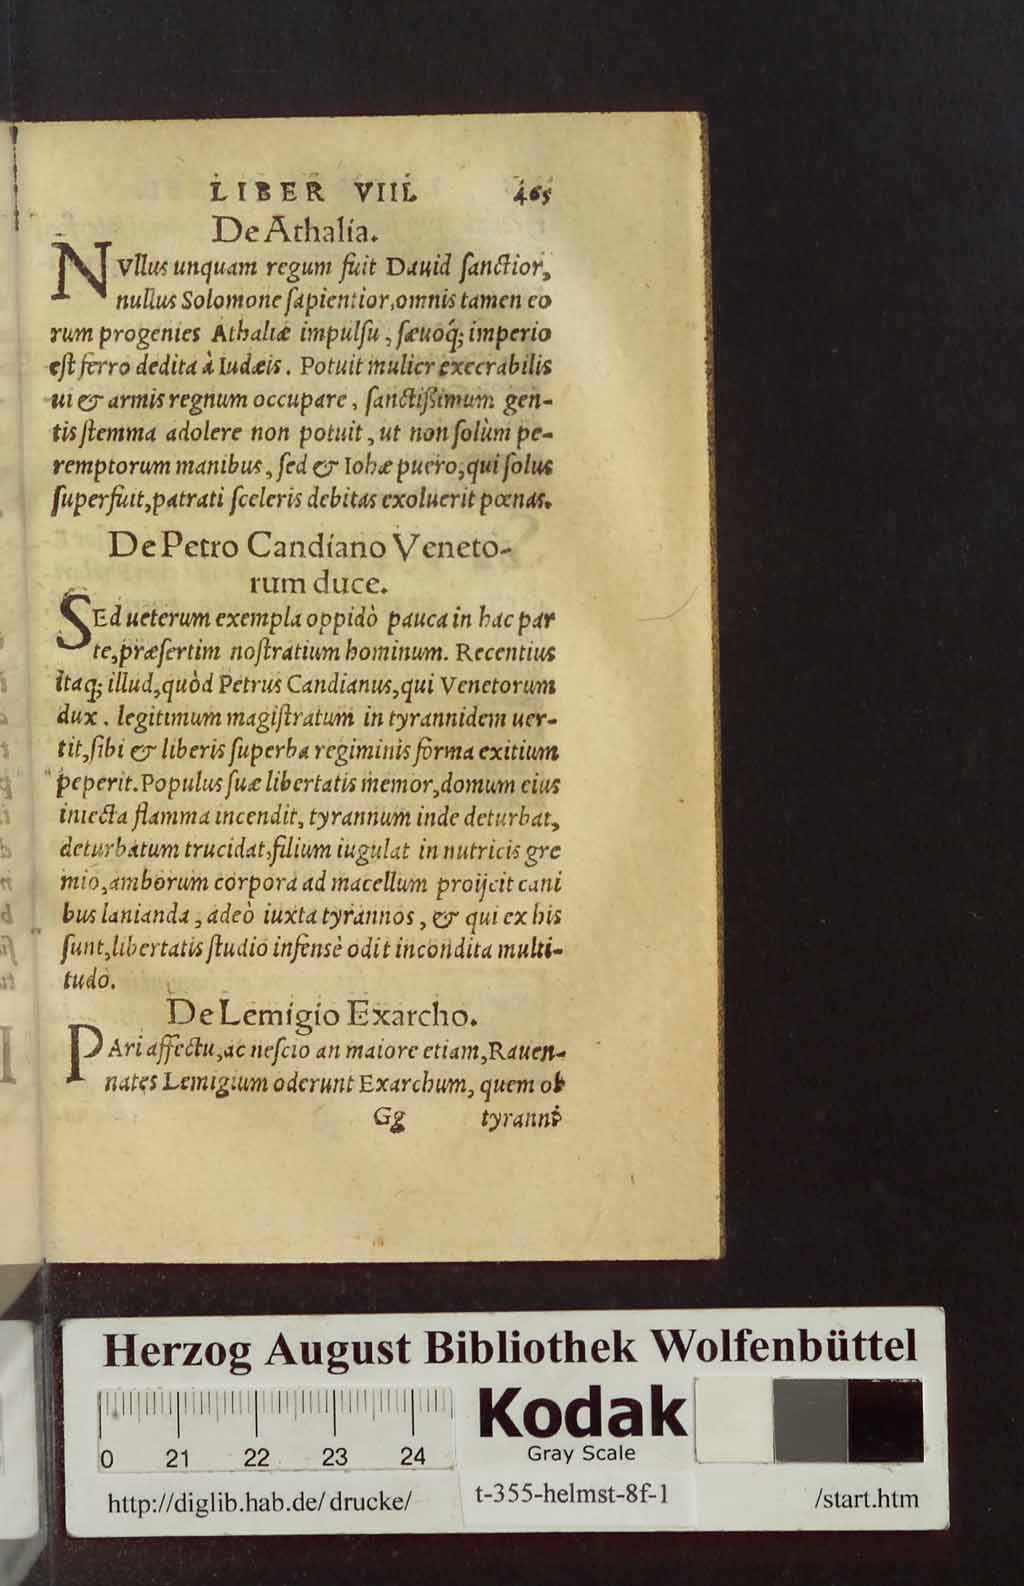 LIBER VIII. 465
De Athalía.
NVllus unquam regum fuit Dauid ſanctior,
nullus Solomone ſapientior, omnis tamen eo
rum progenies Athaliæ impulſu, ſæuoq́; imperio
eſt ferro dedita à Iudæis. Potuit mulier execrabilis
ui & armis regnum occupare, ſanctißimum gen-
tis ſtemma adolere non potuit, ut non ſolùm pe-
remptorum manibus, ſed & Iohæ puero, qui ſolus
ſuperfuit, patrati ſceleris debitas exoluerit pœnas.
De Petro Candíano Veneto-
rum duce.
SEd ueterum exempla oppidò pauca in hac par
te, præſertim noſtratium hominum. Recentius
itaq; illud, quòd Petrus Candianus, qui Venetorum
dux. legitimum magiſtratum in tyrannidem uer-
tit, ſibi & liberis ſuperba regiminis forma exitium
peperit. Populus ſuæ libertatis memor, domum eius
iniecta flamma incendit, tyrannum inde deturbat,
deturbatum trucidat, filium iugulat in nutricis gre
mio, amborum corpora ad macellum proijcit cani
bus lanianda, adeò iuxta tyrannos, & qui ex his
ſunt, libertatis ſtudio infensè odit incondita multi-
tudo.
De Lemígío Exarcho.
PAri affectu, ac neſcio an maiore etiam, Rauen-
nates Lemigium oderunt Exarchum, quem ob
Gg tyranni
Herzog August Bibliothek Wolfenbüttel
0 21 22 23 24
Kodak
Gray Scale
http://diglib.hab.de/drucke/ t-355-helmst-8f-1 /start.htm